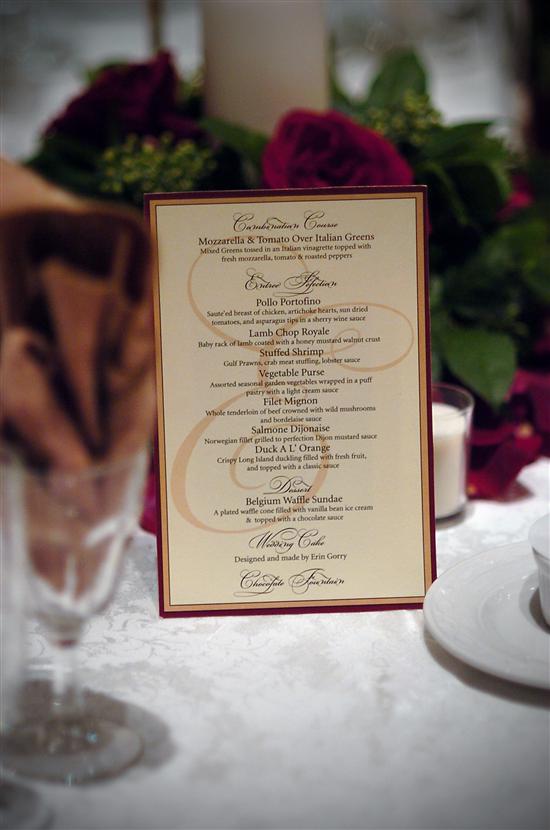 Combination Course
Mozzarella & Tomato Over Italian Greens
Mixed Greens tossed in an Italian vinagrette topped with
fresh mozzarella, tomato & roasted peppers
Entree Selection
Pollo Portofino
Saute'ed breast of chicken, artichoke hearts, sun dried
tomatoes, and asparagus tips in a sherry wine sauce
Lamb Chop Royale
Baby rack of lamb coated with a honey mustard walnut crust
Stuffed Shrimp
Gulf Prawns, crab meat stuffing, lobster sauce
Vegetable Purse
Assorted seasonal garden vegetables wrapped in a puff
pastry with a light cream sauce
Filet Mignon
Whole tenderloin of beef crowned with wild mushrooms
and bordelaise sauce
Salmone Dijonaise
Norwegian fillet grilled to perfection Dijon mustard sauce
Duck A L' Orange
Crispy Long Island duckling filled with fresh fruit,
and topped with a classic sauce
Dessert
Belgium Waffle Sundae
A plated waffle cone filled with vanilla bean ice cream
& topped with a chocolate sauce
Wedding Cake
Designed and made by Erin Gorry
Chocolate Fountain